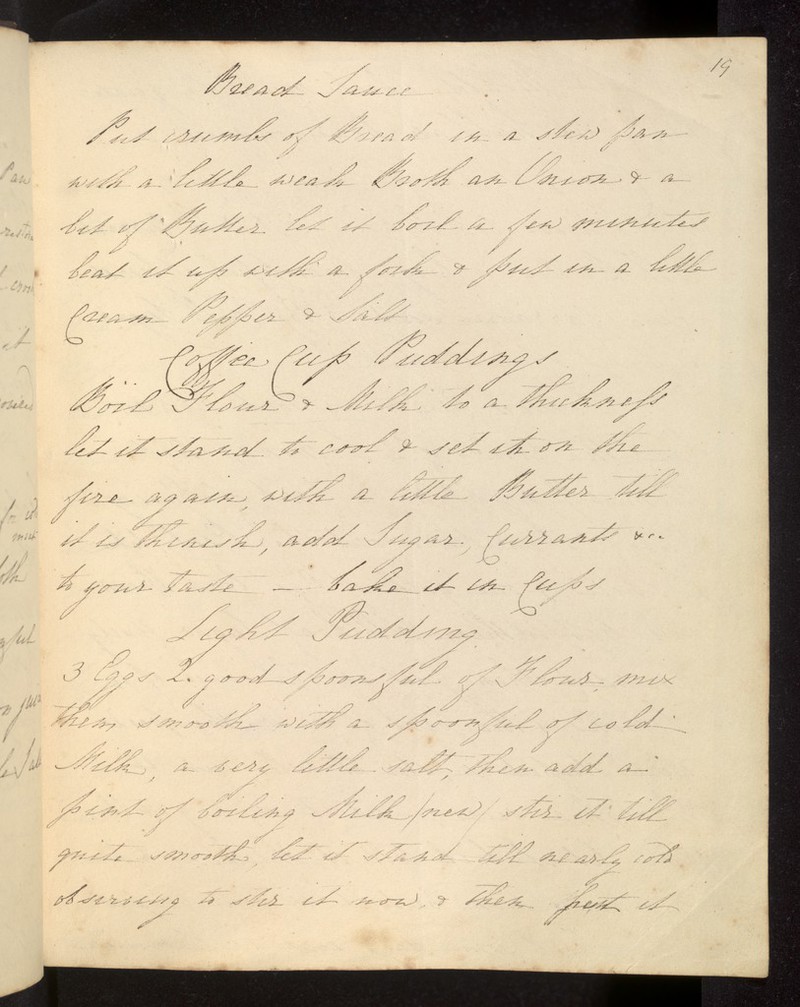 19
Bread Sauce
Put crumbs of Bread in a stew pan
with a little weak Broth an Onion & a
bit of Butter let it boil a few minutes
beat it up with a fork & put in a little
Cream Pepper & Salt
Coffee Cup Puddings
Boil Flour & Milk to a thickness
let it stand to cool & set it on the
fire again, with a little Butter till
it is thinish, add Sugar, Currants &c.
to your taste – bake it in Cups
Light Pudding
3 Eggs 2 good spoonsful of Flour, mix
them smooth with a spoonful of cold
Milk, a very little salt, then add a
pint of boiling Milk (new) stir it till
quite smooth, let it stand till nearly cold
observing to stir it now & then put it